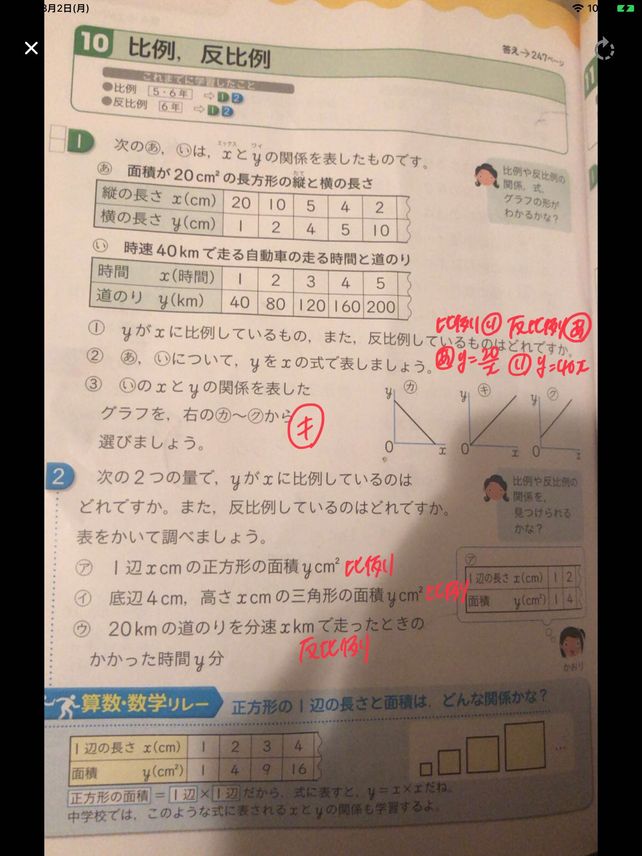 3月2日(月)
10
10 比例，反比例
答え→247ページ
これまでに学習したこと
●比例 5・6年 ⇨ 1 2
●反比例 6年 ⇨ 1 2
1 次のあ，いは，xとyの関係を表したものです。
エックス ワイ
あ 面積が20cm²の長方形の縦と横の長さ
たて
縦の長さ x(cm) 20 10 5 4 2
横の長さ y(cm) 1 2 4 5 10
比例や反比例の
関係，式，
グラフの形が
わかるかな？
い 時速40kmで走る自動車の走る時間と道のり
時間 x(時間) 1 2 3 4 5
道のり y(km) 40 80 120 160 200
① yがxに比例しているもの，また，反比例しているものはどれですか。
比例い 反比例あ
② あ，いについて，yをxの式で表しましょう。
あ y=20/x い y=40x
③ いのxとyの関係を表した
グラフを，右のカ〜クから
選びましょう。
キ
カ y O x
キ y O x
ク y O x
2 次の2つの量で，yがxに比例しているのは
どれですか。また，反比例しているのはどれですか。
表をかいて調べましょう。
比例や反比例の
関係を，
見つけられる
かな？
ア 1辺xcmの正方形の面積ycm² 比例
イ 底辺4cm，高さxcmの三角形の面積ycm² 比例
ウ 20kmの道のりを分速xkmで走ったときの
かかった時間y分 反比例
ア
1辺の長さ x(cm) 1 2
面積 y(cm²) 1 4
かおり
算数・数学リレー 正方形の1辺の長さと面積は，どんな関係かな？
1辺の長さ x(cm) 1 2 3 4
面積 y(cm²) 1 4 9 16
…
正方形の面積＝1辺×1辺だから，式に表すと，y＝x×xだね。
中学校では，このような式に表されるxとyの関係も学習するよ。